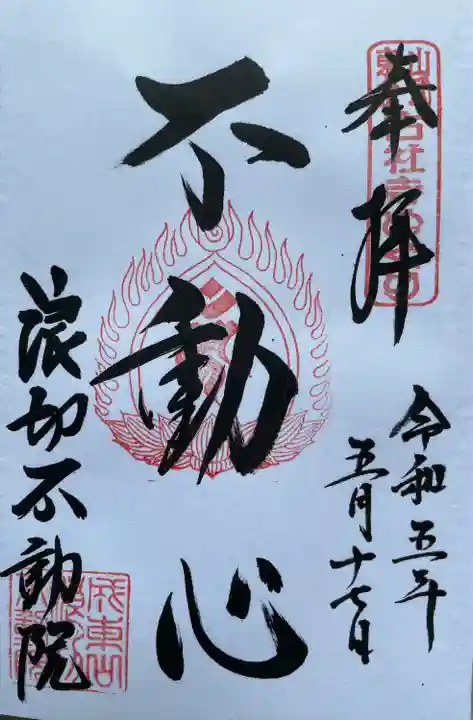 奉拝
令和五年
五月十七日
不動心
浪切不動院